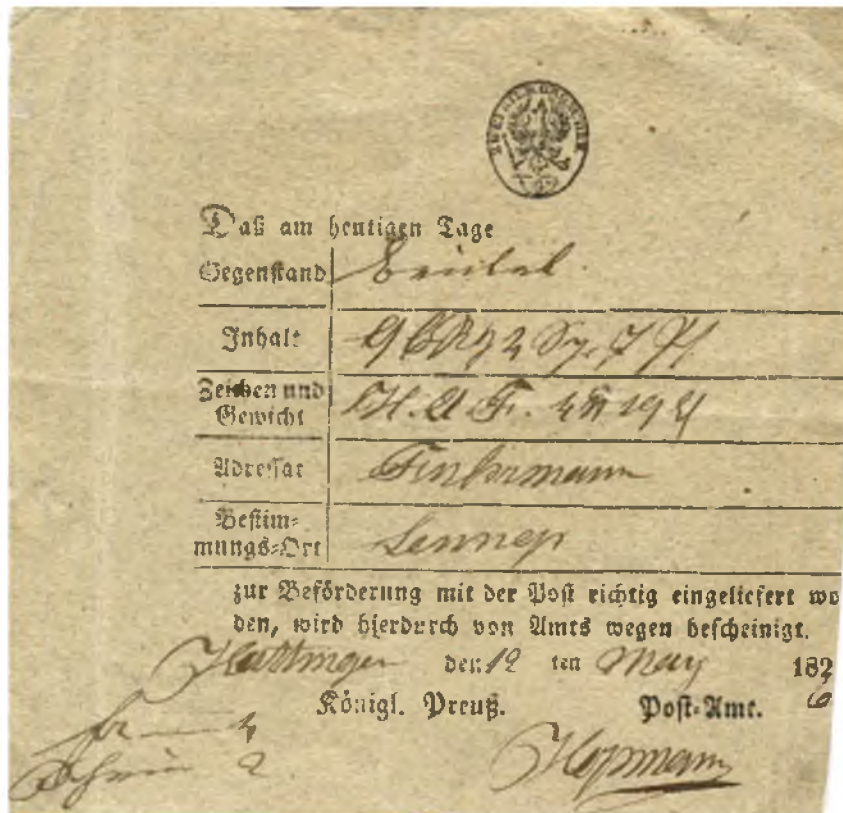 ZWEI SILB. GROSCHEN
Daß am heutigen Tage
Gegenstand Beutel
Inhalt
Zeichen und
Gewicht H. A. F.
Adressat
Bestim-
mungs-Ort Lennep
zur Beförderung mit der Post richtig eingeliefert wo
den, wird hierdurch von Amts wegen bescheinigt.
Hattingen den 12 ten May 182
6
Königl. Preuß. Post-Amt.
Hopmann